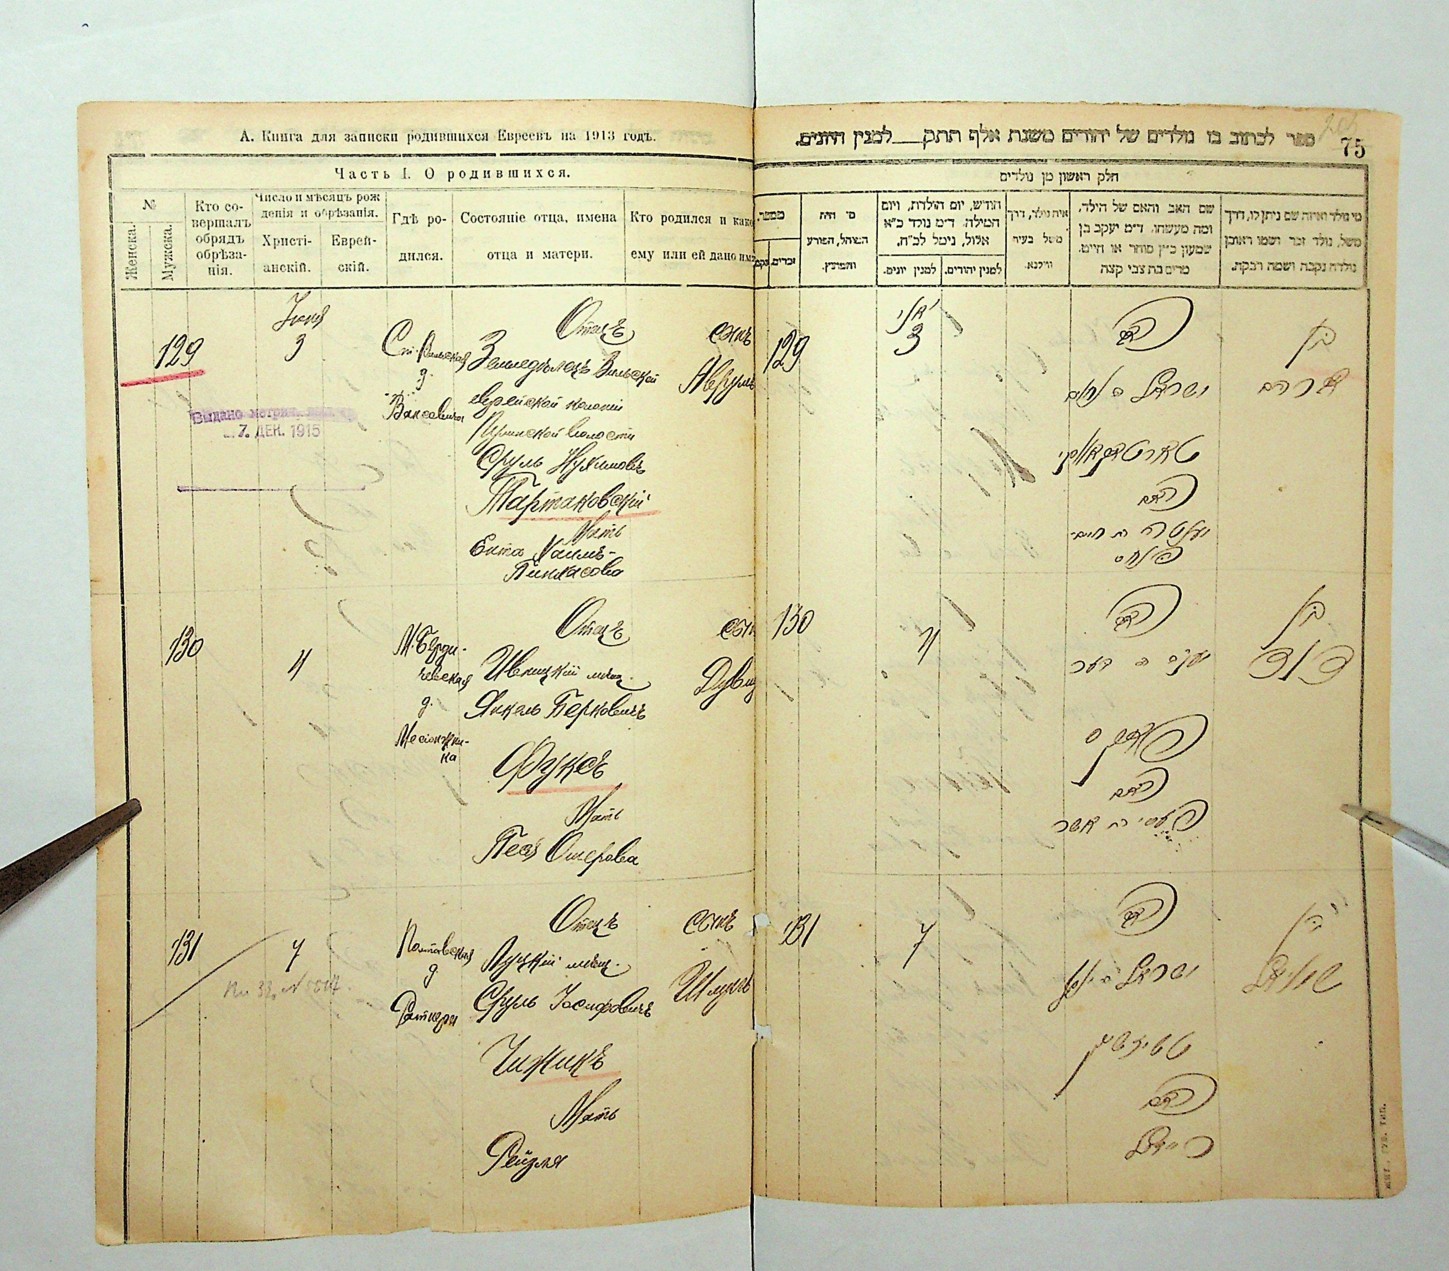 А. Книга для записки родившихся Евреевъ на 1913 годъ.
Часть I. О родившихся.
№
Женска.
Мужска.
Кто со-
вершалъ
обрядъ
обрѣза-
нія.
Число и мѣсяцъ рож
денія и обрѣзанія.
Христі-
анскій.
Еврей-
скій.
Гдѣ ро-
дился.
Состояніе отца, имена
отца и матери.
Кто родился и како
ему или ей дано им
129
Іюня
3
Выдано метрич.
7. ДЕК. 1915
Ст. Вильская
д.
Ваксовича
Отецъ
Земледѣлецъ Вильской
еврейской колоніи
волости
Сруль Нухимовъ
Тартаковскій
Мать
Ента Хаимъ-
Пинхасова
сынъ
Аврумъ
130
4
М. Берди-
чевская
д.
Отецъ
Ивницкій мѣщ.
Янкель Берковичъ
Фуксъ
Мать
Песя Ошерова
сынъ
Дувид
131
7
Полтавская
д
Ратнера
Отецъ
Луцкій мѣщ.
Сруль Іосифовичъ
Чижикъ
Мать
Рейзля
сынъ
Шмуль
ספר לכתוב בו נולדים של יהודים משנת אלף תתק למנין היונים.
75
חלק ראשון מן נולדים
מספר.
זכרים.
נקבו
מי היה
המוהל, הפורע
והמוצץ.
חודש, יום הולדות, ויום
המילה. ד״מ נולד כ״א
אלול, נימל לכ״ח.
למנין יונים.
למנין יהודים.
איה נולד, דרך
משל בעיר
ווילנא.
שם האב והאם של הילד,
ומה מעשהו. ד״מ יעקב בן
שמעון כ״ץ סוחר או חייט.
מרים בת צבי קצה
מי נולד ואיזה שם ניתן לו, דרך
משל, נולד זכר ושמו ראובן
נולדה נקבה ושמה רבקה.
129
יוני
3
האב
ישראל ב נחום
טארטאקאווסקי
האם
יענטה בת חיים-
פינחס
בן
אברהם
130
4
האב
יעקב ב בער
פוקס
האם
פעסי בת אשר
בן
דוד
131
7
האב
ישראל ב יוסף
טשיזשיק
האם
רייזל
בן
שמואל